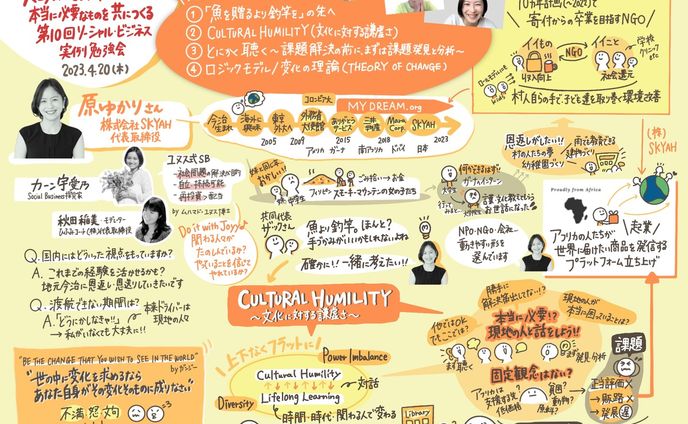 本当に必要なものを共につくる
第10回ソーシャル・ビジネス
実例勉強会
2023.4.20(木)
①「魚を贈るより釣竿を」の先へ
② CULTURAL HUMILITY(文化に対する謙虚さ)
③ とにかく聴く〜課題解決の前に、まずは課題発見と分析〜
④ ロジックモデル/変化の理論(THEORY OF CHANGE)
10カ年計画(〜2022)で
寄付からの卒業を目指すNGO
イイもの
NGO
イイこと
学校
クリニック
etc
収入向上
社会還元
村人自らの手で、子ども達を取り巻く環境改善
原ゆかりさん
株式会社SKYAH
代表取締役
コロンビア大
MY DREAM.org
今治
生まれ
海外に
興味
東京
外大へ
外務省
大使館
ありがとう
サービス
三井
物産
Mara
Corp.
SKYAH
2005
2009
2012
2015
2018
2023
アメリカ
ガーナ
南アフリカ
ドバイ
日本
カーン宇愛乃
Social Business探究家
ユヌス式SB
社会問題の解決が目的
自立・持続可能
再投資
by ムハマド・ユヌス博士
秋田稲美
モデレーター
(株)代表取締役
Do it with Joy♪
関わる人々が
たのしいか?
やっていることを信じて
やれているか?
中学生
ごみ拾い→お金
フィリピン スモーキーマウンテンの女の子たち
大学生
何ができるはず!!
ガーナ/インターン
共同代表
ザッグさん
魚より釣竿。ほんと?
手づかみがいいかもしれないよね
確かに!!一緒に考えたい!!
NPO・NGO・会社…
動きやすい形を
選んでいます
恩返しがしたい!!
村の人たちの夢
幼稚園づくり
雨でも教育できる
建物づくり
(株)
SKYAH
Proudly from Africa
アメリカの人たちが
世界に届けたい商品を発信する
プラットフォーム立ち上げ
起業
Q. 国内にはどういった視点をもっていますか?
A. これまでの経験を活かせるかも?
地元今治に恩返し・恩送りしていきたいです
Q. 渡航できない期間は?
A.「どうにかしなきゃ!!」
→ 私がいなくても大丈夫に!!
本来ドライバーは
現地の人々
CULTURAL HUMILITY
〜文化に対する謙虚さ〜
上下なくフラットに
Power Imbalance
Cultural Humility
Lifelong Learning
対話
Diversity
時間・時代・関わる人で変わる
Library
"BE THE CHANGE THAT YOU WISH TO SEE IN THE WORLD"
by ガンジー
"世の中に変化を求めるなら
あなた自身がその変化そのものに成りなさい"
不満
怨
勝手に
解決策出してない!?
現地の人が
本当に困っていることは?
他ではOK
でもここでは?
本当に必要!?
現地の人と話をしよう!!
まず聴く
発見・分析
固定観念はない?
貧困?
動物?
課題
正当評価×
→ 販路×
→ 発展 遅